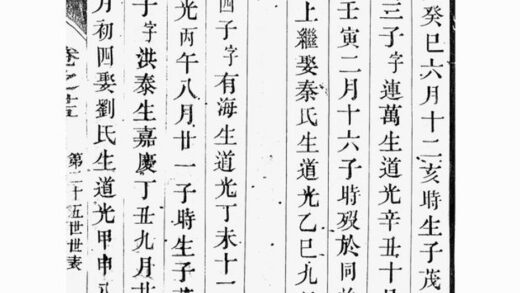 癸巳六月十二亥時生子茂
三子字連萬生道光辛丑十月
壬寅二月十六子時歿於同
上繼娶秦氏生道光乙巳九
四子字有海生道光丁未十一
光丙午八月廿一子時生子
子字洪泰生嘉慶丁丑九月廿
月初四娶劉氏生道光甲申
第二十五世世表